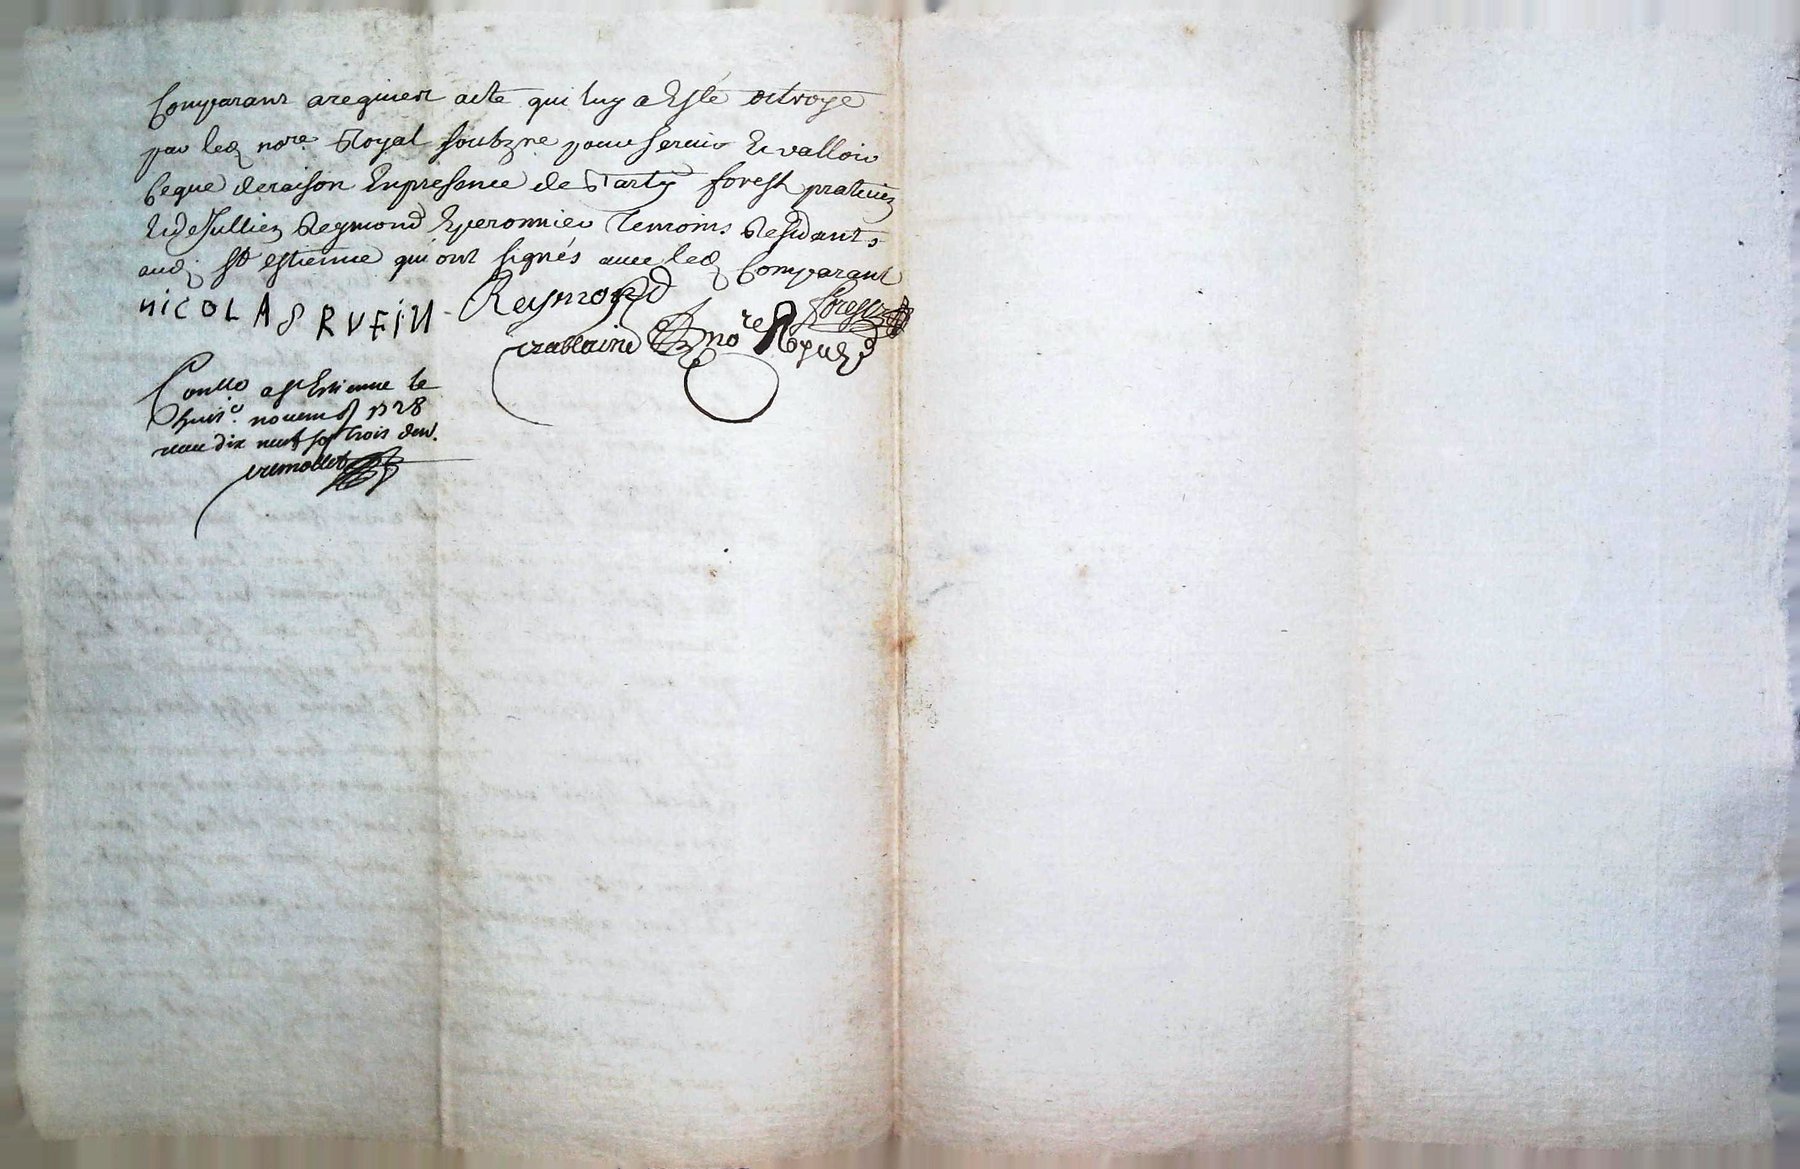 Comparant a requiert acte qui luy a Esté octroyé
par led nore Royal soubzne pour servir Et valloir
Ceque de raison En presence de forest praticien
Et de Jullien Reymond Eperonnier Temoins Residants
aud St estienne qui ont signés avec led Comparant
NICOLAS RVFIN Reymond forest
nore Royal
Conllo a St Estienne le
huit novem 1728
Reçu dix neuf sols trois den.